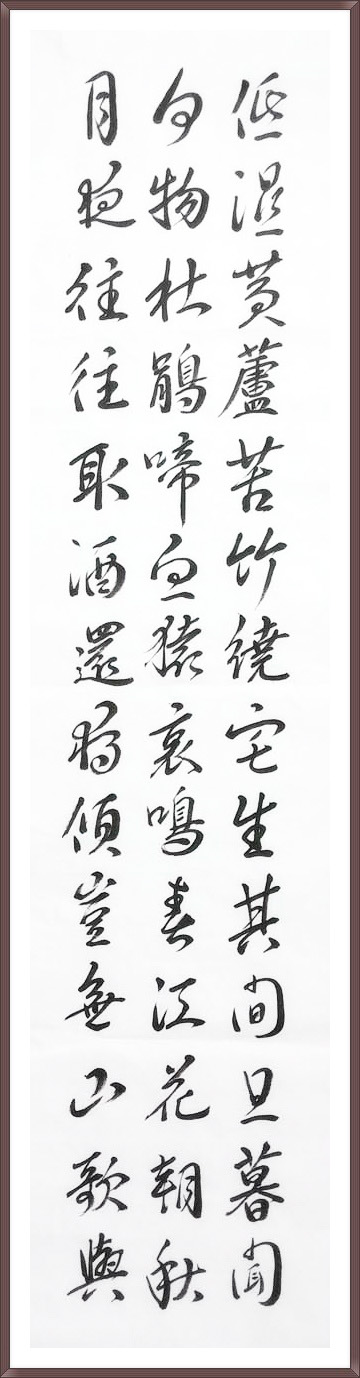 低湿黄蘆苦竹繞宅生其間旦暮聞
何物杜鵑啼血猿哀鳴春江花朝秋
月夜往往取酒還獨傾豈無山歌與